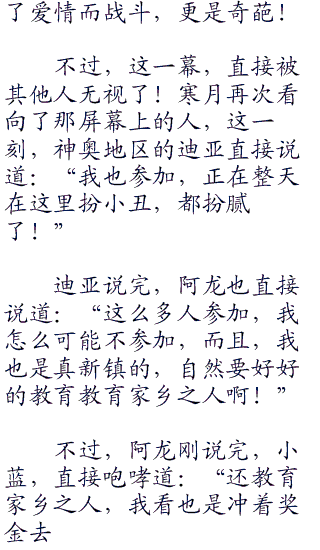 了爱情而战斗，更是奇葩！
不过，这一幕，直接被
其他人无视了！寒月再次看
向了那屏幕上的人，这一
刻，神奥地区的迪亚直接说
道：“我也参加，正在整天
在这里扮小丑，都扮腻
了！”
迪亚说完，阿龙也直接
说道：“这么多人参加，我
怎么可能不参加，而且，我
也是真新镇的，自然要好好
的教育教育家乡之人啊！”
不过，阿龙刚说完，小
蓝，直接咆哮道：“还教育
家乡之人，我看也是冲着奖
金去